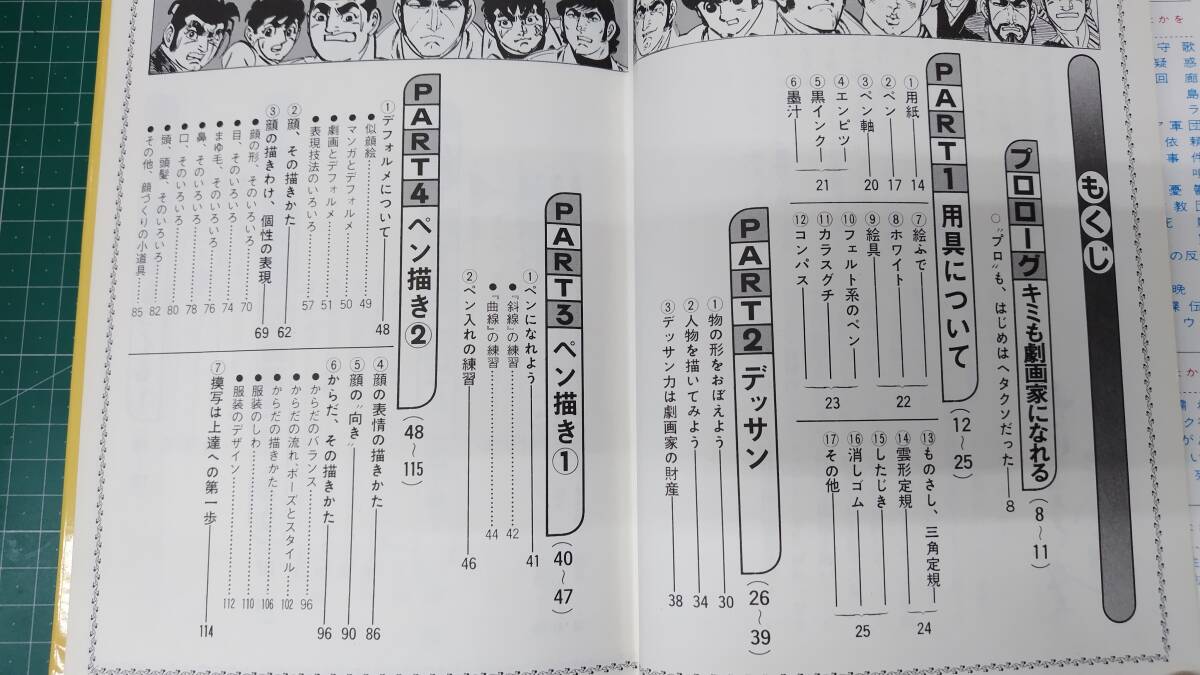 もくじ
プロローグ キミも劇画家になれる (8〜11)
○“プロ”も、はじめはヘタクソだった 8
PART1 用具について (12〜25)
①用紙 14
②ペン 17
③ペン軸 20
④エンピツ
⑤黒インク 21
⑥墨汁
⑦絵ふで
⑧ホワイト 22
⑨絵具
⑩フェルト系のペン
⑪カラスグチ 23
⑫コンパス
⑬ものさし、三角定規
⑭雲形定規 24
⑮したじき
⑯消しゴム 25
⑰その他
PART2 デッサン (26〜39)
①物の形をおぼえよう 30
②人物を描いてみよう 34
③デッサン力は劇画家の財産 38
PART3 ペン描き① (40〜47)
①ペンになれよう 41
●『斜線』の練習 42
●『曲線』の練習 44
②ペン入れの練習 46
PART4 ペン描き② (48〜115)
①デフォルメについて 48
●似顔絵 49
●マンガとデフォルメ 50
●劇画とデフォルメ 51
●表現技法のいろいろ 57
②顔、その描きかた 62
③顔の描きわけ、個性の表現 69
●顔の形、そのいろいろ 70
●目、そのいろいろ 74
●まゆ毛、そのいろいろ 76
●鼻、そのいろいろ 78
●口、そのいろいろ 80
●頭、頭髪、そのいろいろ 82
●その他、顔づくりの小道具 85
④顔の表情の描きかた 86
⑤顔の“向き” 90
⑥からだ、その描きかた 96
●からだのバランス 96
●からだの流れ、ポーズとスタイル 102
●からだの描きかた 106
●服装のしわ 110
●服装のデザイン 112
⑦模写は上達への第一歩 114